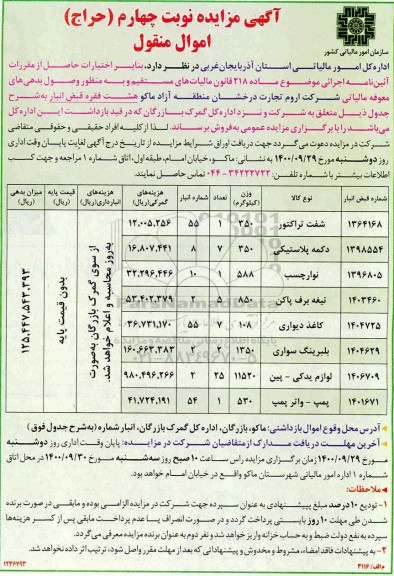 آگهی مزایده نوبت چهارم (حراج)
اموال منقول
سازمان امور مالیاتی کشور
اداره کل امور مالیاتی استان آذربایجان غربی در نظر دارد، بنابر اختیارات حاصل از مقررات
آئین نامه اجرائی موضوع ماده ۲۱۸ قانون مالیات های مستقیم و به منظور وصول بدهی های
معوقه مالیاتی شرکت اروم تجارت درخشان منطقه آزاد ماکو هشت فقره قبض انبار به شرح
جدول ذیل متعلق به شرکت و نزد اداره کل گمرک بازرگان که در قید بازداشت این اداره کل
می باشد را با برگزاری مزایده عمومی به فروش برساند. لذا از کلیه افراد حقیقی و حقوقی متقاضی
شرکت در مزایده دعوت می گردد جهت دریافت اوراق شرایط مزایده از تاریخ درج آگهی لغایت پایان وقت اداری
روز دوشنبه مورخ ۱۴۰۰/۰۹/۲۹ به نشانی: ماکو، خیابان امام، طبقه اول، اتاق شماره ۱ مراجعه و جهت کسب
اطلاعات بیشتر با شماره تلفن: ۳۴۲۲۲۷۲۲-۰۴۴ تماس حاصل نمایند.
شماره قبض انبار نوع کالا وزن (کیلوگرم) تعداد شماره انبار هزینه های گمرکی (ریال) هزینه های انبارداری (ریال) قیمت پایه (ریال) میزان بدهی (ریال)
۱۳۶۴۱۶۸ شفت تراکتور ۳۵۰ ۱ ۵۵ ۱۲.۰۰۵.۲۵۶
۱۳۹۸۵۵۴ دکمه پلاستیکی ۳۵۰ ۷ ۸ ۱۶.۸۰۷.۴۴۱
۱۳۹۶۸۰۵ نوارچسب ۵۸۸ ۱ ۱۰ ۳۲.۲۹۶.۴۴۶
۱۴۰۳۴۶۰ تیغه برف پاکن ۸۵۰ ۵ ۲ ۵۳.۴۰۲.۳۷۹
۱۴۰۴۷۲۵ کاغذ دیواری ۱۰۸ ۷ ۵۵ ۳۶.۷۳۱.۱۷۰
۱۴۰۴۶۲۹ بلبرینگ سواری ۱۳۵۰ ۲ ۲ ۱۶۰.۶۶۳.۳۸۲
۱۴۰۶۷۰۹ لوازم یدکی - پین ۱۱۵۲۰ ۲۵ ۲ ۹۸۰.۴۹۶.۲۶۶
۱۴۰۱۶۷۱ پمپ - واتر پمپ ۵۳۰ ۱ ۵۴ ۴۱.۷۲۴.۱۹۱
از سوی گمرک بازرگان به صورت
به روز محاسبه و اعلام خواهد شد.
بدون قیمت پایه
۱۲۵.۴۴۷.۵۴۳.۳۹۳
آدرس محل وقوع اموال بازداشتی: ماکو، بازرگان، اداره کل گمرک بازرگان، انبار شماره (به شرح جدول فوق)
آخرین مهلت دریافت مدارک از متقاضیان شرکت در مزایده: پایان وقت اداری روز دوشنبه
مورخ ۱۴۰۰/۰۹/۲۹ زمان برگزاری مزایده راس ساعت ۱۰ صبح روز سه شنبه مورخ ۱۴۰۰/۰۹/۳۰ در محل اتاق
شماره ۱ اداره امور مالیاتی شهرستان ماکو واقع در خیابان امام خواهد بود.
ملاحظات:
۱- تودیع ۱۰ درصد مبلغ پیشنهادی به عنوان سپرده جهت شرکت در مزایده الزامی بوده و مابقی در صورت برنده
شدن طی مهلت ۱۰ روز بایستی پرداخت گردد و در صورت انصراف یا عدم پرداخت مابقی پس از کسر هزینه ها
سپرده به نفع دولت ضبط و به حساب خزانه واریز خواهد شد و نفر دوم به عنوان برنده مزایده معرفی می گردد.
۲- به پیشنهادات فاقد امضاء، مشروط و مخدوش و پیشنهاداتی که بعد از مهلت مقرر واصل شود، ترتیب اثر داده نخواهد شد.
م الف/ ۳۱۱۶
۱۲۳۶۷۹۳